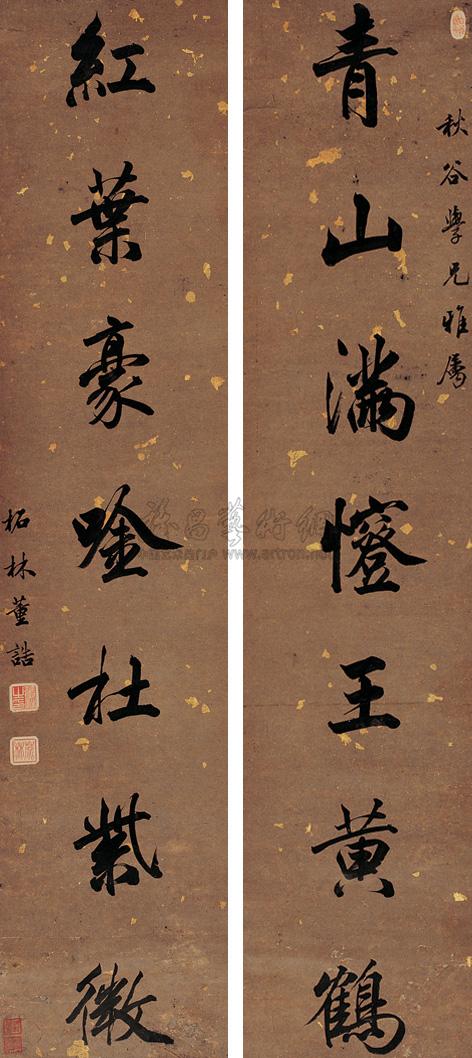 秋谷學兄雅屬
青山滿王黃鶴
紅葉豪唫杜紫微
柘林董誥
雅昌藝術網
www.artron.net